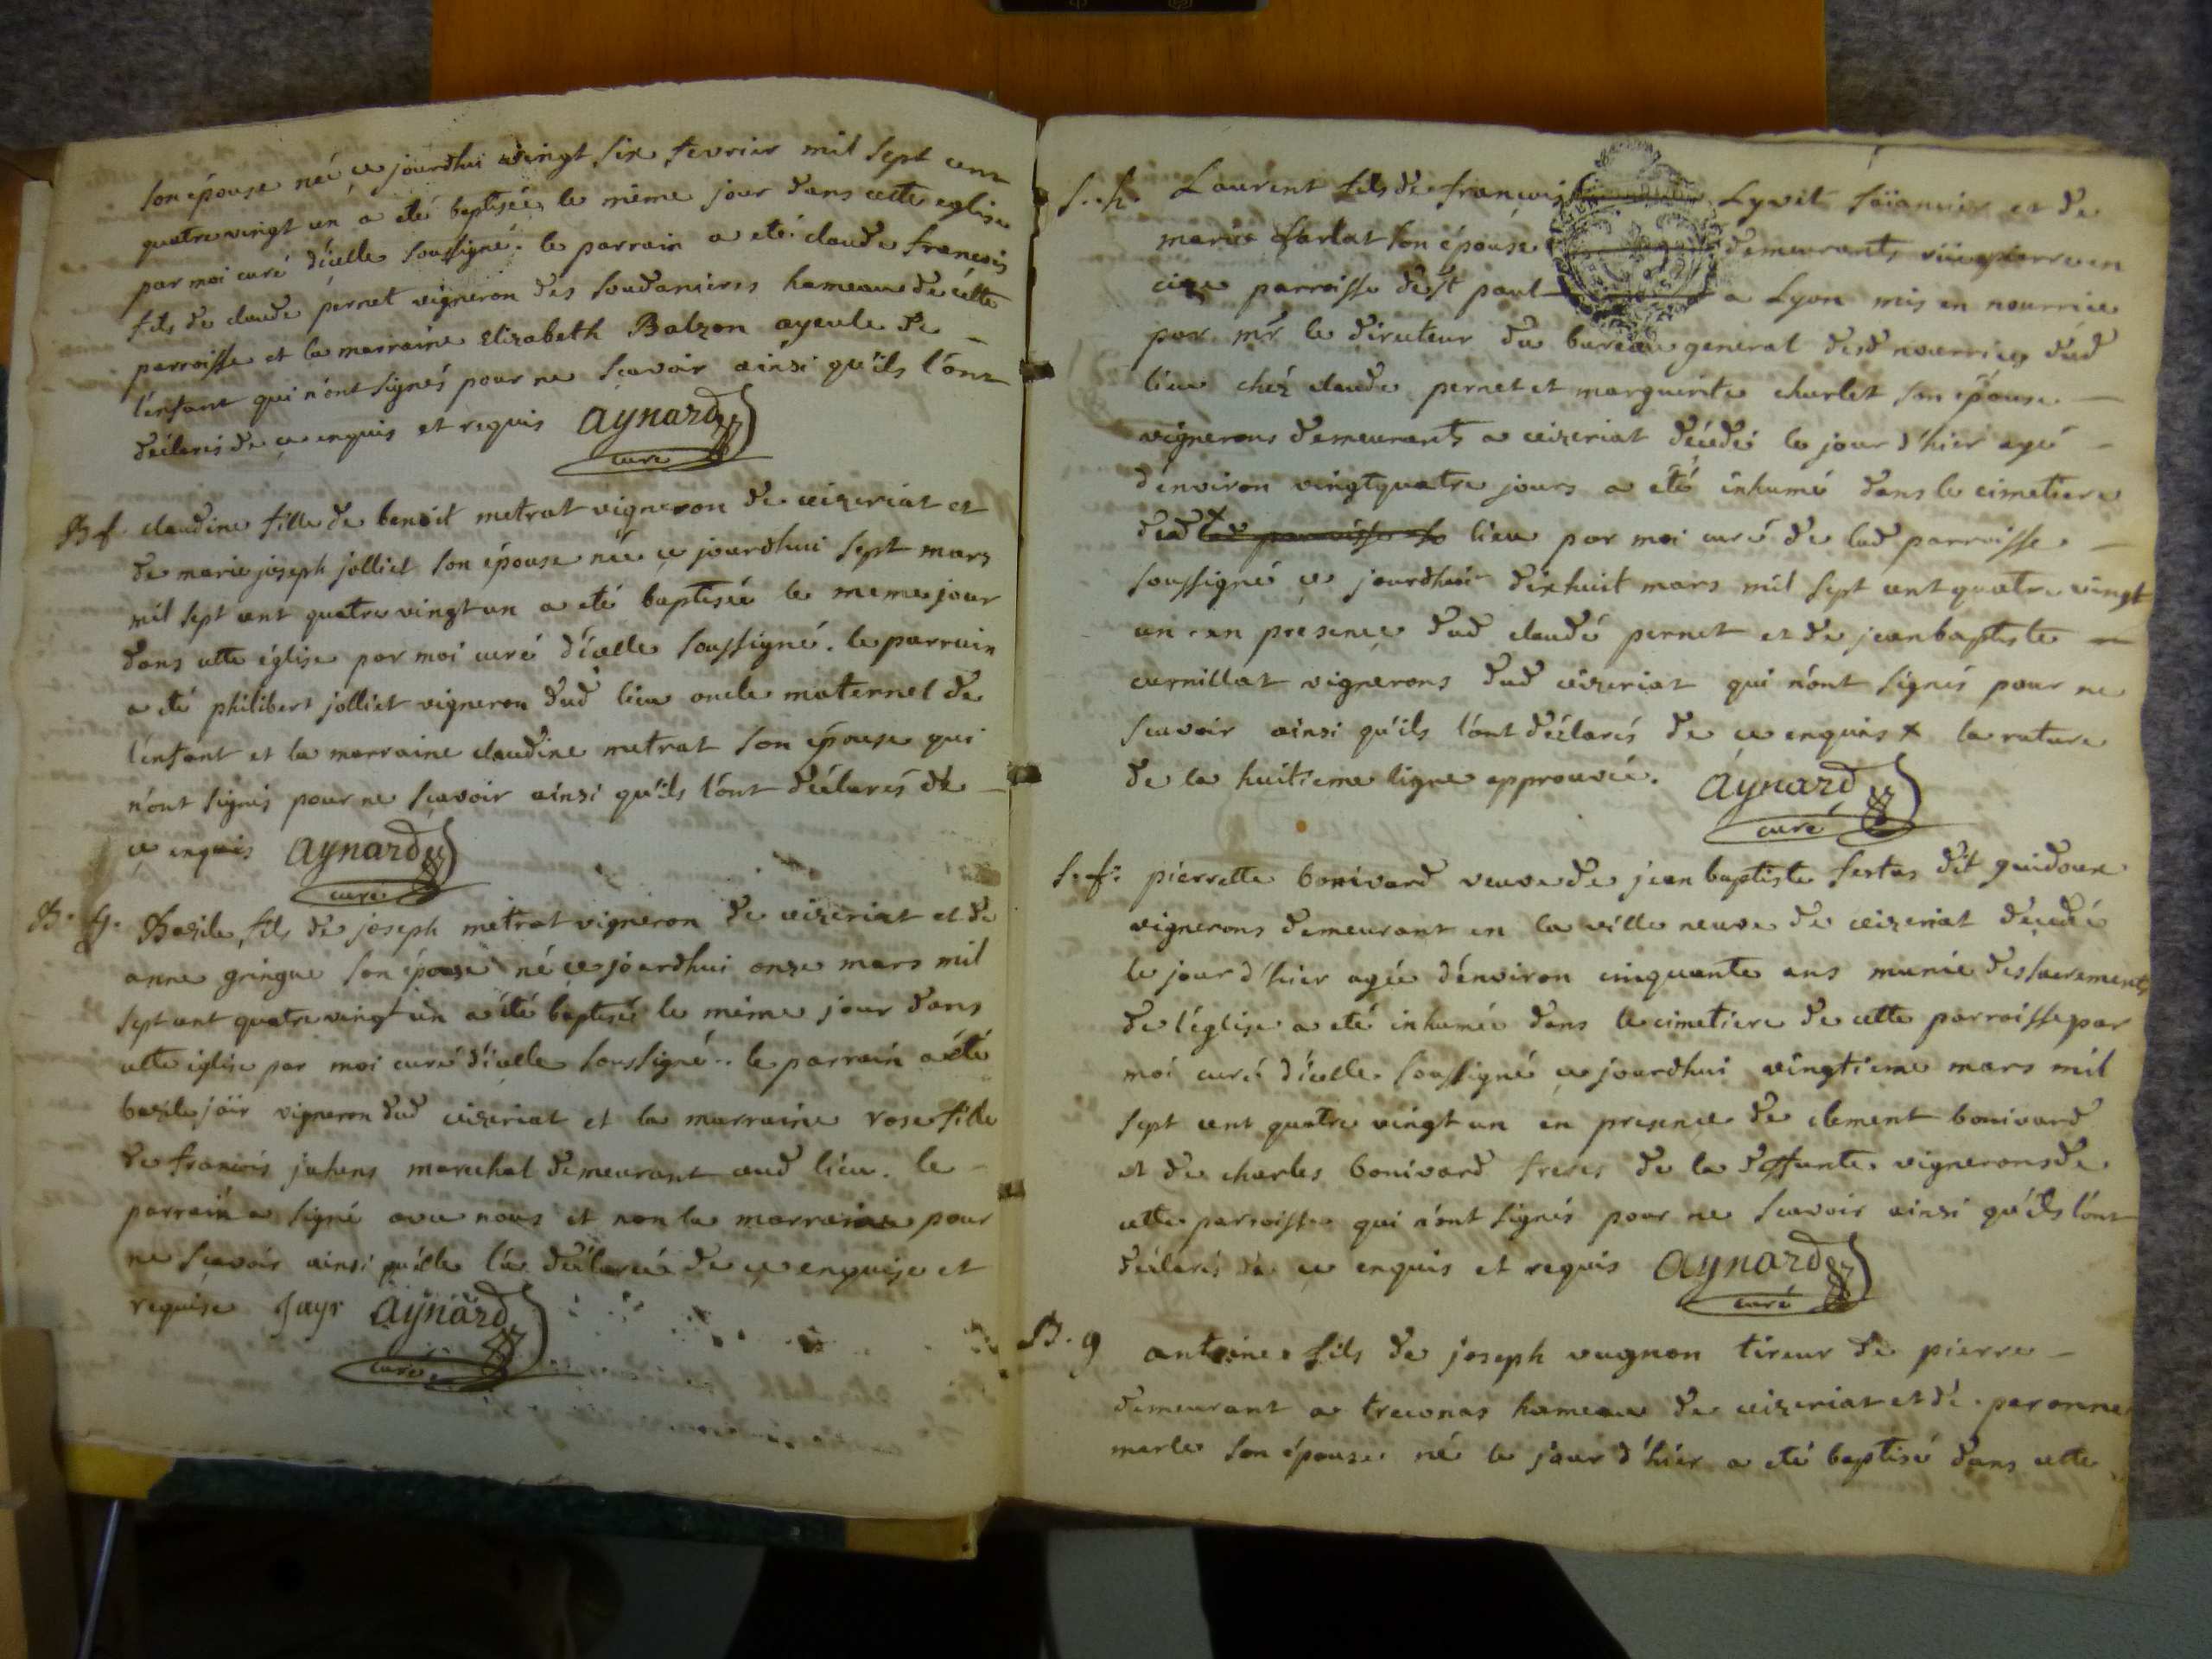 son épouse née ce jourdhui vingt six fevrier mil sept cent
quatre vingt un a eté baptisée le même jour dans cette eglise
par moi curé d'icelle soussigné. le parrain a eté claude francois
fils de claude pernet vigneron des soudanieres hameau de cette
parroisse et la marraine elizabeth Balzon ayeule de
l'enfant qui n'ont signés pour ne scavoir ainsi qu'ils l'ont
déclarés de ce enquis et requis aynard
curé
B f claudine fille de benoit metrat vigneron de ceizeriat et
de marie joseph jolliet son épouse née ce jourdhui sept mars
mil sept cent quatre vingt un a eté baptisée le meme jour
dans cette église par moi curé d'icelle soussigné. le parrain
a eté philibert jolliet vigneron dud lieu oncle maternel de
l'enfant et la marraine claudine metrat son épouse qui
n'ont signés pour ne scavoir ainsi qu'ils l'ont déclarés de
ce enquis aynard
curé
B. g. Bazile fils de joseph metrat vigneron de ceizeriat et de
anne gringue son épouse né ce jourdhui onze mars mil
sept cent quatre vingt un a été baptisé le même jour dans
cette église par moi curé d'icelle soussigné. le parrain a été
bazile jair vigneron dud ceizeriat et la marraine rose fille
de francois juhens marechal demeurant aud lieu. le
parrain a signé avec nous et non la marraine pour
ne scavoir ainsi qu'elle l'a déclarée de ce enquise et
requise Jayr aynard
curé
S. h. Laurent fils de françois Lyvet et de
marie farlat son épouse demeurants
parroisse de st paul a Lyon mis en nourrice
par mr le directeur du bureau general desd nourrices dud
lieu chéz claude pernet et marguerite charlet son épouse
vignerons demeurants a ceizeriat décédé le jour d'hier agé
d'environ vingtquatre jours a eté inhumé dans le cimetiere
dud x lieu par moi curé de lad parroisse
soussigné ce jourdhui dixhuit mars mil sept cent quatre vingt
un en presence dud claude pernet et de jean baptiste
curnillat vignerons dud ceizeriat qui n'ont signés pour ne
scavoir ainsi qu'ils l'ont déclarés de ce enquis x la rature
de la huitieme ligne approuvée. aynard
curé
S. f. pierrette bonivard veuve de jean baptiste festas dit guidoux
vignerons demeurant en la ville neuve de ceizeriat décédée
le jour d'hier agée d'environ cinquante ans munie des sacrements
de l'église a eté inhumée dans le cimetiere de cette parroisse par
moi curé d'icelle soussigné ce jourdhui vingtieme mars mil
sept cent quatre vingt un en presence de clement bonivard
et de charles bonivard freres de la deffunte vignerons de
cette parroisse qui n'ont signés pour ne scavoir ainsi qu'ils l'ont
déclarés de ce enquis et requis aynard
curé
B. g antoine fils de joseph vugnon tireur de pierre
demeurant a treconas hameau de ceizeriat et de peronne
merle son épouse né le jour d'hier a eté baptisé dans cette